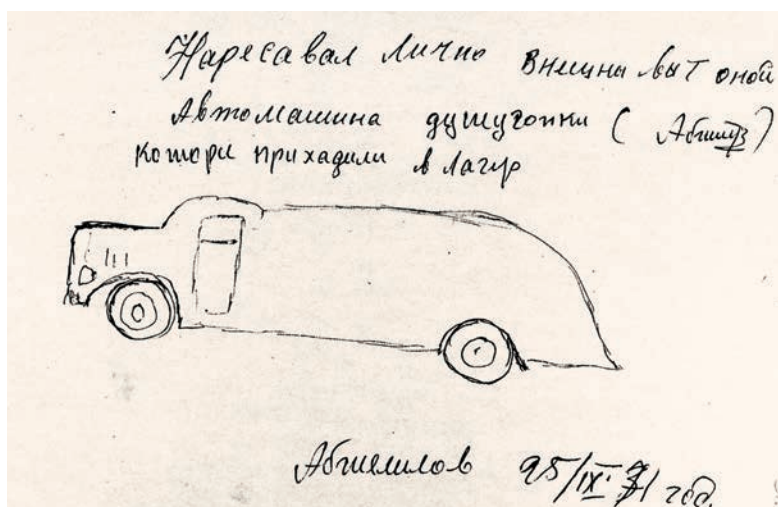 Наресавал лично внешны выт оной
Автомашина душугопки (
котори прихадили в лагур
Абжелилов 25/IX 71 год.